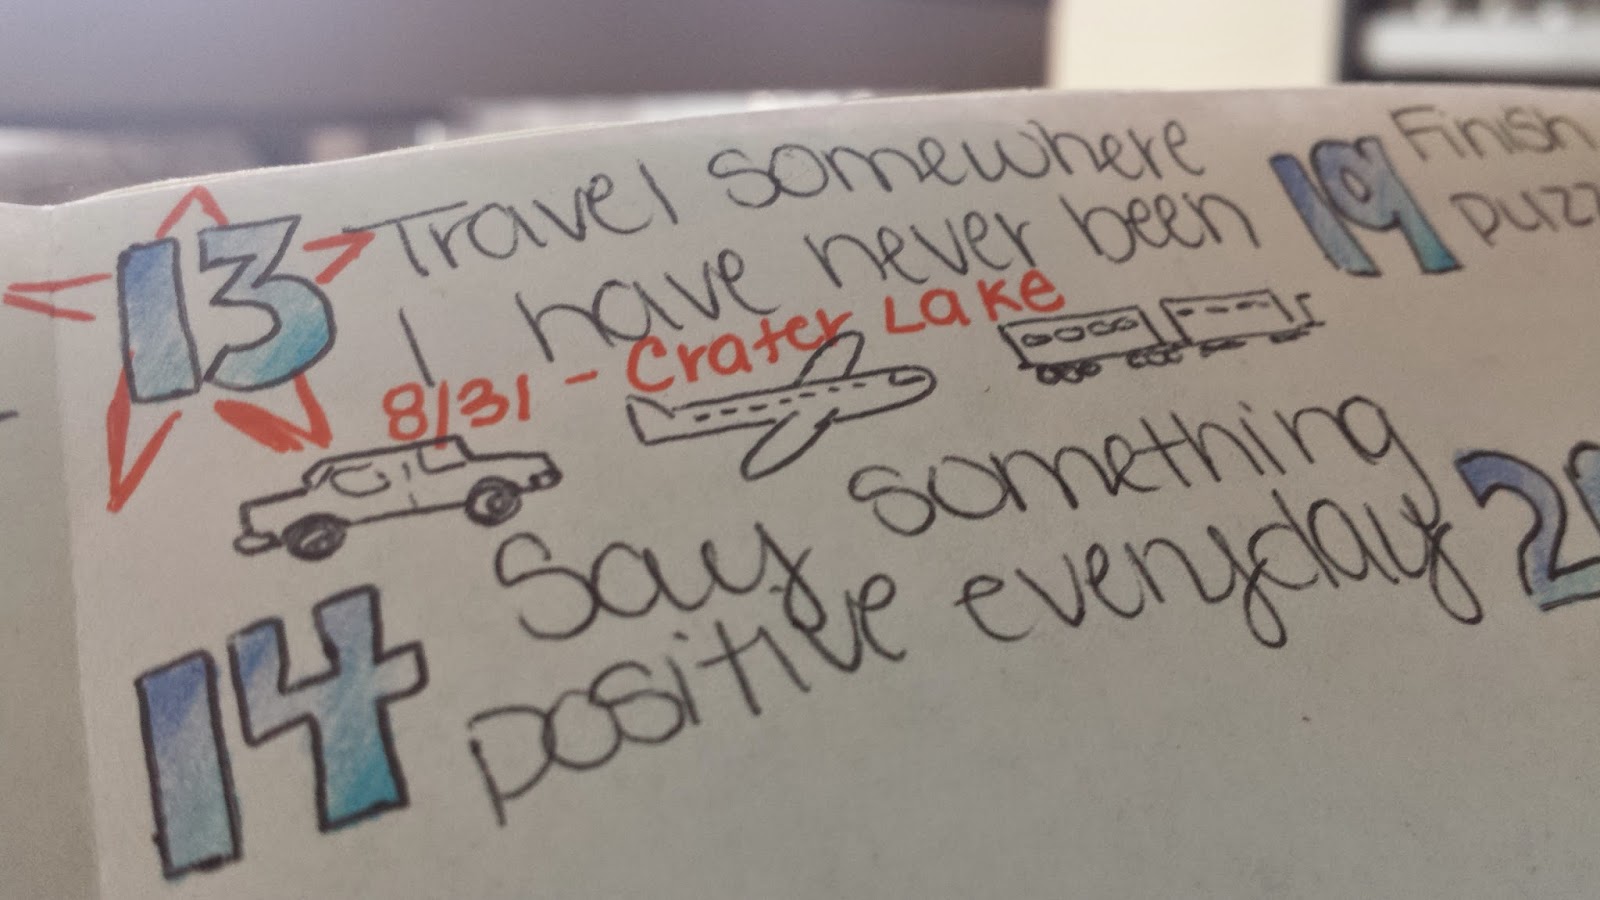 13 Travel somewhere
I have never been
8/31 - Crater Lake
14 Say something
positive everyday
19 Finish
puzz
2